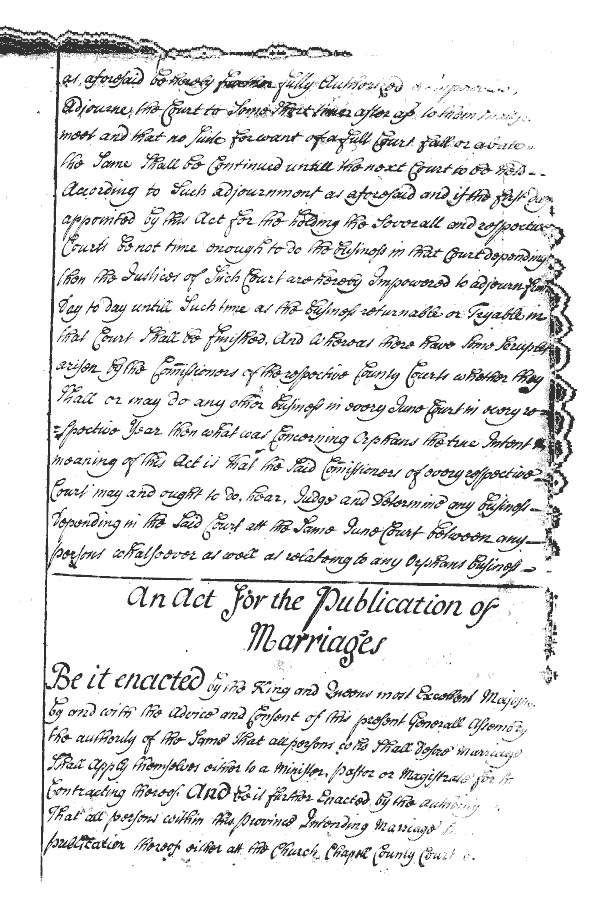 as aforesaid be hereby further fully Authorized
Adjourne the Court to Some short time after as to them
meet and that no Suite for want of a full Court fall or abate
the Same Shall be Continued untill the next Court to be held
According to Such adjournment as aforesaid and if the first day
appointed by this Act for the holding the Severall and respective
Courts be not time enough to do the business in that Court depending
then the Justices of Such Court are hereby Impowered to adjourn from
day to day untill Such time as the business returnable or Tryable in
that Court Shall be finished, And whereas there have Some Scruples
arisen by the Comissioners of the respective County Courts whether they
Shall or may do any other business in every June Court in every re-
=spective Year then what was Concerning Orphans the true Intent &
meaning of this Act is that the Said Comissioners of every respective
Court may and ought to do, hear, Judge and Determine any business
depending in the Said Court att the Same June Court between any
persons whatsoever as well as relateing to any Orphans business
An Act for the Publication of
Marriages
Be it enacted by the King and Queens most Excellent Majesties
by and with the Advice and Consent of this present Generall Assembly
the authority of the Same That all persons who Shall desire marriage
Shall Apply themselves either to a minister, pastor or Magistrate for the
Contracting thereof And be it further Enacted by the authority
That all persons within this Province Intending Marriage
publication thereof either att the Church Chapell County Court